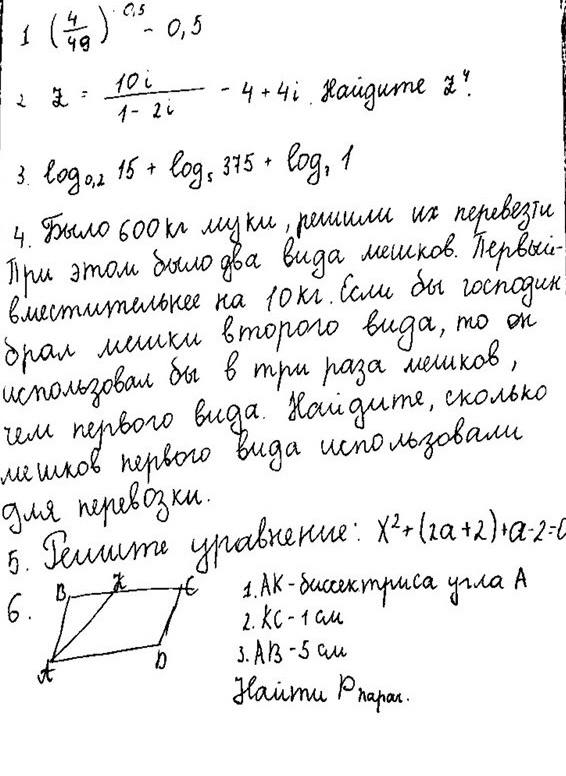 1 (4/49)^-0,5 - 0,5
2 Z = 10i / 1 - 2i - 4 + 4i. Найдите Z⁴.
3. log₀,₂ 15 + log₅ 375 + log₇ 1
4. Было 600 кг муки, решили их перевезти
При этом было два вида мешков. Первый-
вместительнее на 10 кг. Если бы господин
брал мешки второго вида, то он
использовал бы в три раза мешков,
чем первого вида. Найдите, сколько
мешков первого вида использовали
для перевозки.
5. Решите уравнение: x²+(2a+2)+a-2=0
6. B K C 1. AK - биссектриса угла A
2. KC - 1 см
A D 3. AB - 5 см
Найти P парал.